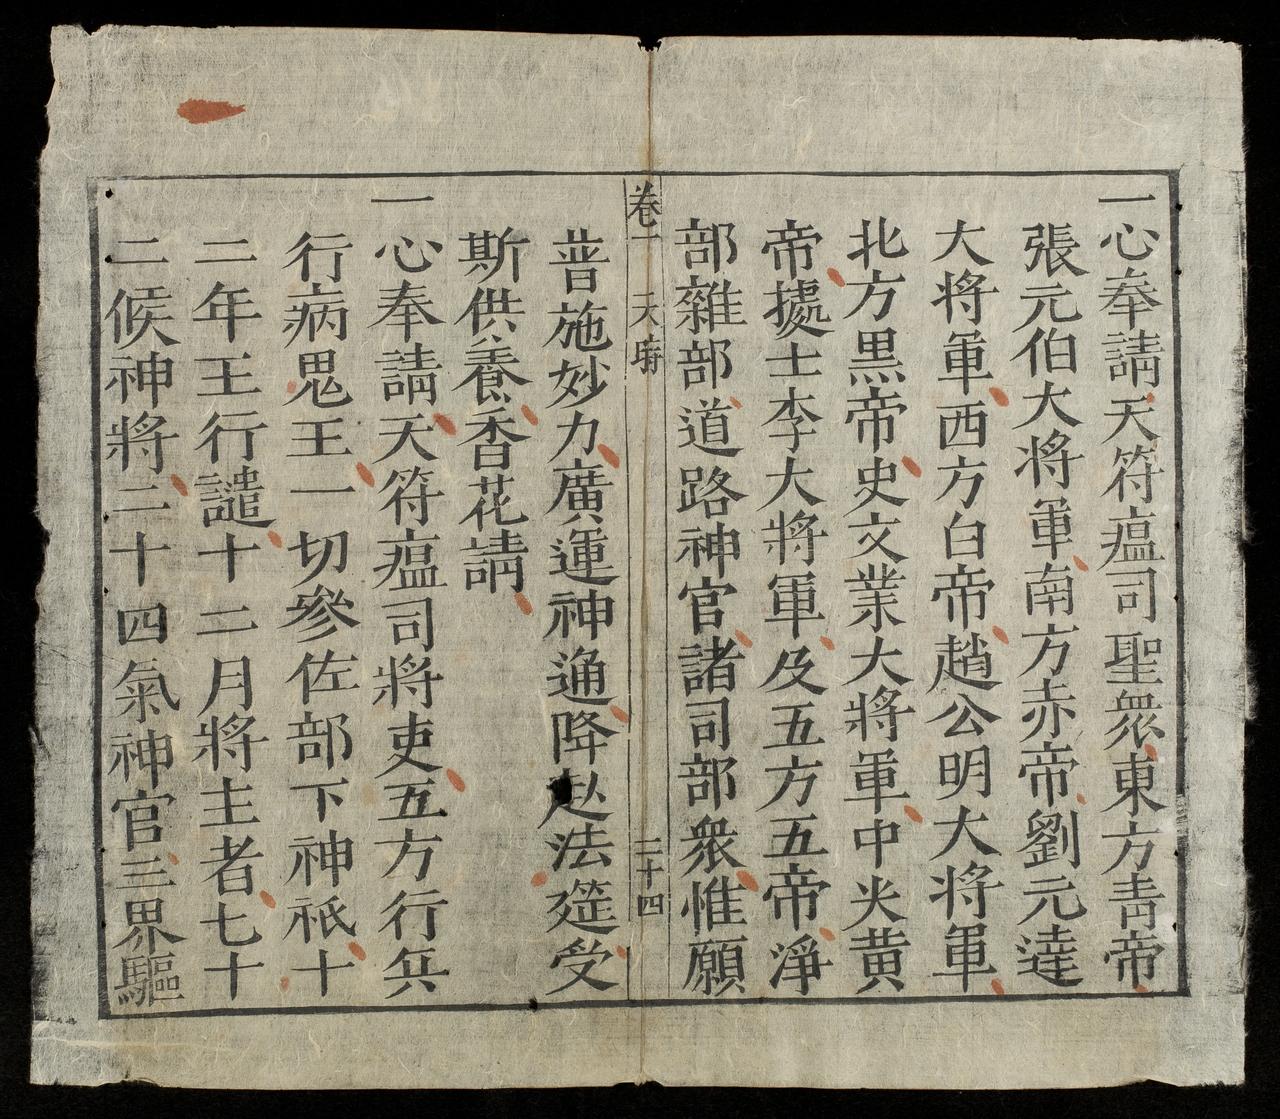 一心奉請天符瘟司聖衆東方青帝
張元伯大將軍南方赤帝劉元達
大將軍西方白帝趙公明大將軍
北方黒帝史文業大將軍中央黄
帝㨿士李大將軍及五方五帝淨
部雜部道路神官諸司部衆惟願
卷一 天府 二十四
普施妙力廣運神通降赴法筵受
斯供養香花請
一心奉請天符瘟司將吏五方行兵
行病鬼王一切參佐部下神祇十
二年王行譴十二月將主者七十
二候神將二十四氣神官三界驅